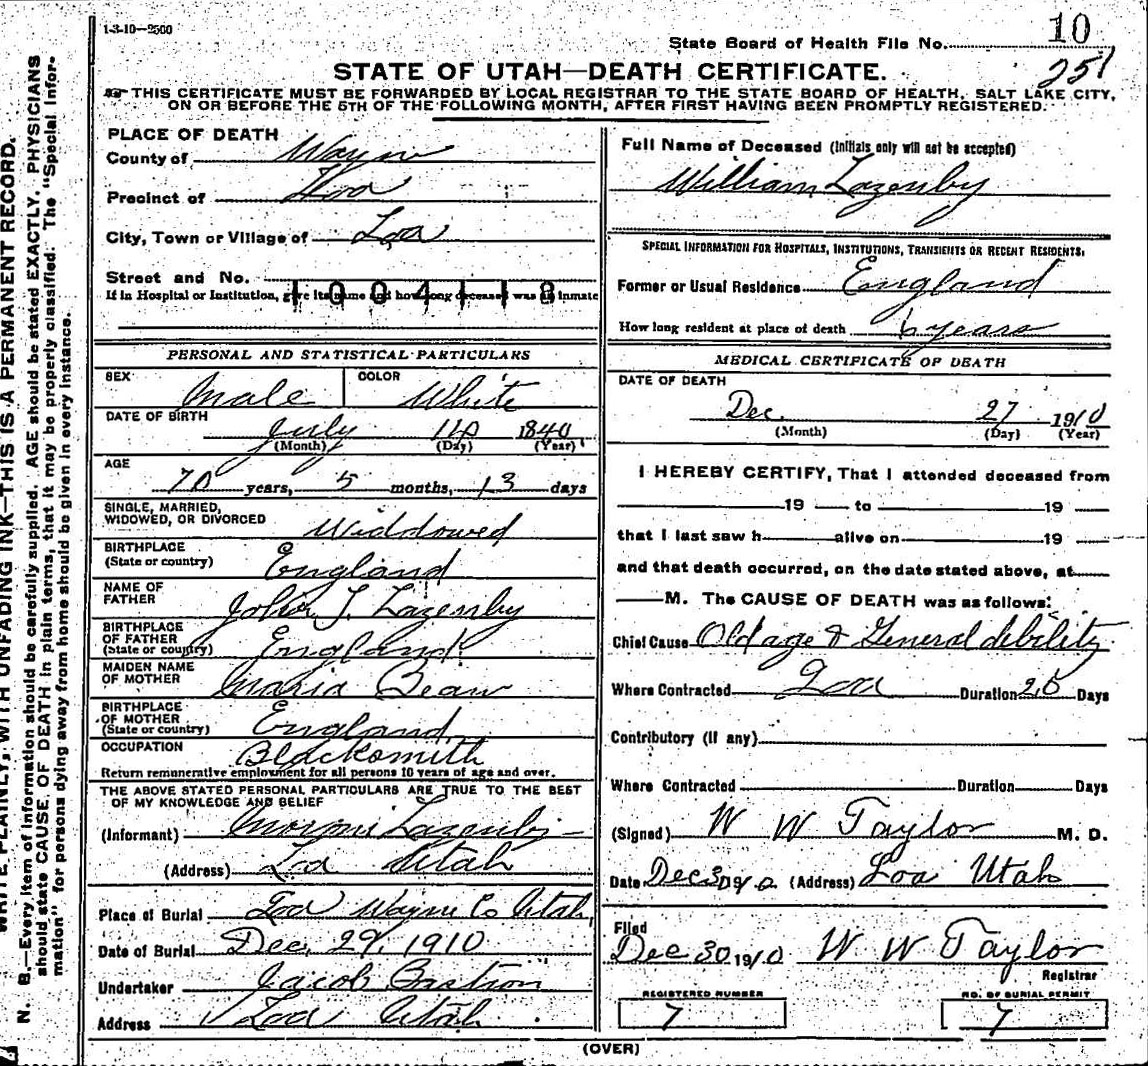 1-3-10—2500
State Board of Health File No. 10
251
STATE OF UTAH—DEATH CERTIFICATE.
THIS CERTIFICATE MUST BE FORWARDED BY LOCAL REGISTRAR TO THE STATE BOARD OF HEALTH, SALT LAKE CITY,
ON OR BEFORE THE 5TH OF THE FOLLOWING MONTH, AFTER FIRST HAVING BEEN PROMPTLY REGISTERED.
WRITE PLAINLY, WITH UNFADING INK—THIS IS A PERMANENT RECORD.
N. B.—Every item of information should be carefully supplied. AGE should be stated EXACTLY. PHYSICIANS
should state CAUSE OF DEATH in plain terms, that it may be properly classified. The "Special Infor-
mation" for persons dying away from home should be given in every instance.
PLACE OF DEATH
County of Wayne
Precinct of Loa
City, Town or Village of Loa
Street and No.
1004118
If in Hospital or Institution, give its name and how long deceased was an inmate
PERSONAL AND STATISTICAL PARTICULARS
SEX Male COLOR White
DATE OF BIRTH
July 14 1840
(Month) (Day) (Year)
AGE
70 years, 5 months, 13 days
SINGLE, MARRIED,
WIDOWED, OR DIVORCED Widdowed
BIRTHPLACE
(State or country) England
NAME OF
FATHER John T. Lazenby
BIRTHPLACE
OF FATHER
(State or country) England
MAIDEN NAME
OF MOTHER Maria Bean
BIRTHPLACE
OF MOTHER
(State or country) England
OCCUPATION Blacksmith
Return remunerative employment for all persons 10 years of age and over.
THE ABOVE STATED PERSONAL PARTICULARS ARE TRUE TO THE BEST
OF MY KNOWLEDGE AND BELIEF
(Informant) Lazenby
(Address) Loa Utah
Place of Burial Loa Wayne Co Utah
Date of Burial Dec. 29, 1910
Undertaker Jacob Bastion
Address Loa Utah
Full Name of Deceased (Initials only will not be accepted)
William Lazenby
SPECIAL INFORMATION FOR HOSPITALS, INSTITUTIONS, TRANSIENTS OR RECENT RESIDENTS.
Former or Usual Residence England
How long resident at place of death 6 years
MEDICAL CERTIFICATE OF DEATH
DATE OF DEATH
Dec. 27 1910
(Month) (Day) (Year)
I HEREBY CERTIFY, That I attended deceased from
19 to 19
that I last saw h alive on 19
and that death occurred, on the date stated above, at
M. The CAUSE OF DEATH was as follows:
Chief Cause Old age & General debility
Where Contracted Loa Duration 25 Days
Contributory (if any)
Where Contracted Duration Days
(Signed) W W Taylor M. D.
Date Dec 30 1910 (Address) Loa Utah
Filed
Dec 30 1910 W W Taylor
Registrar
REGISTERED NUMBER
7
NO. OF BURIAL PERMIT
7
(OVER)